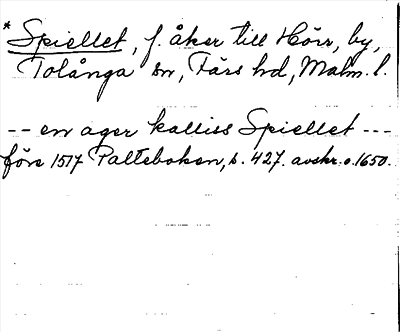 * Spiellet, f. åker till Hörr, by,
Tolånga sn, Färs hd, Malm. l.
-- en ager kalliss Spiellet ---
före 1517 Palteboken, s. 427. avskr. o. 1650.